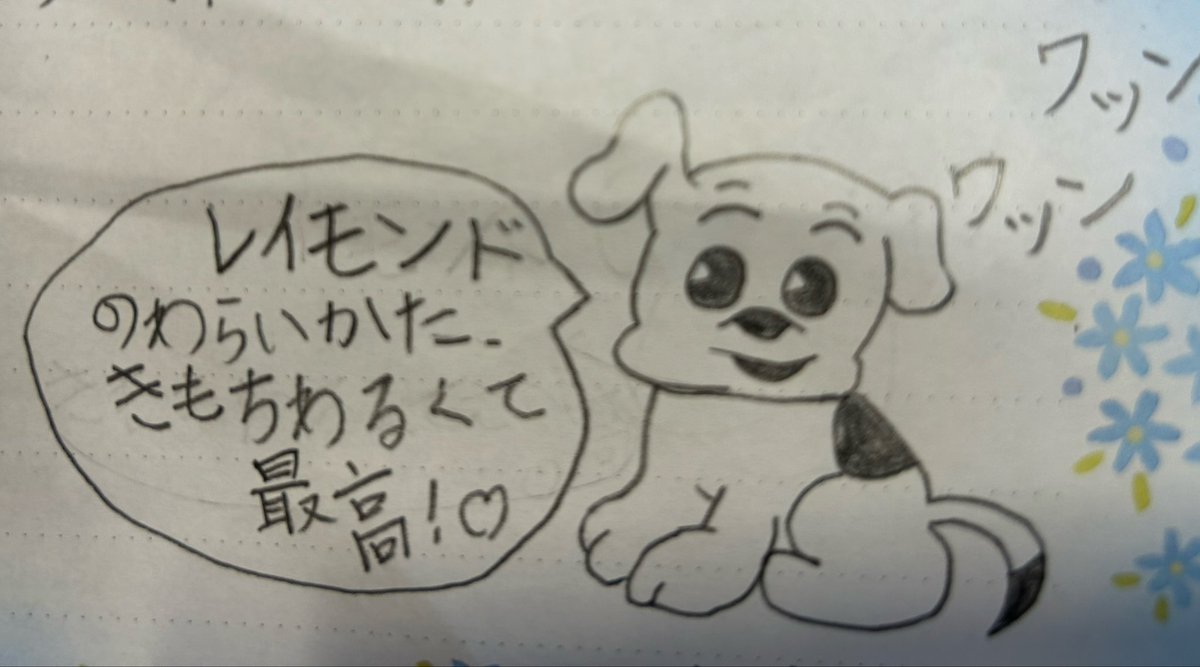 レイモンド
のわらいかた、
きもちわるくて
最高!♡
ワッン
ワッン